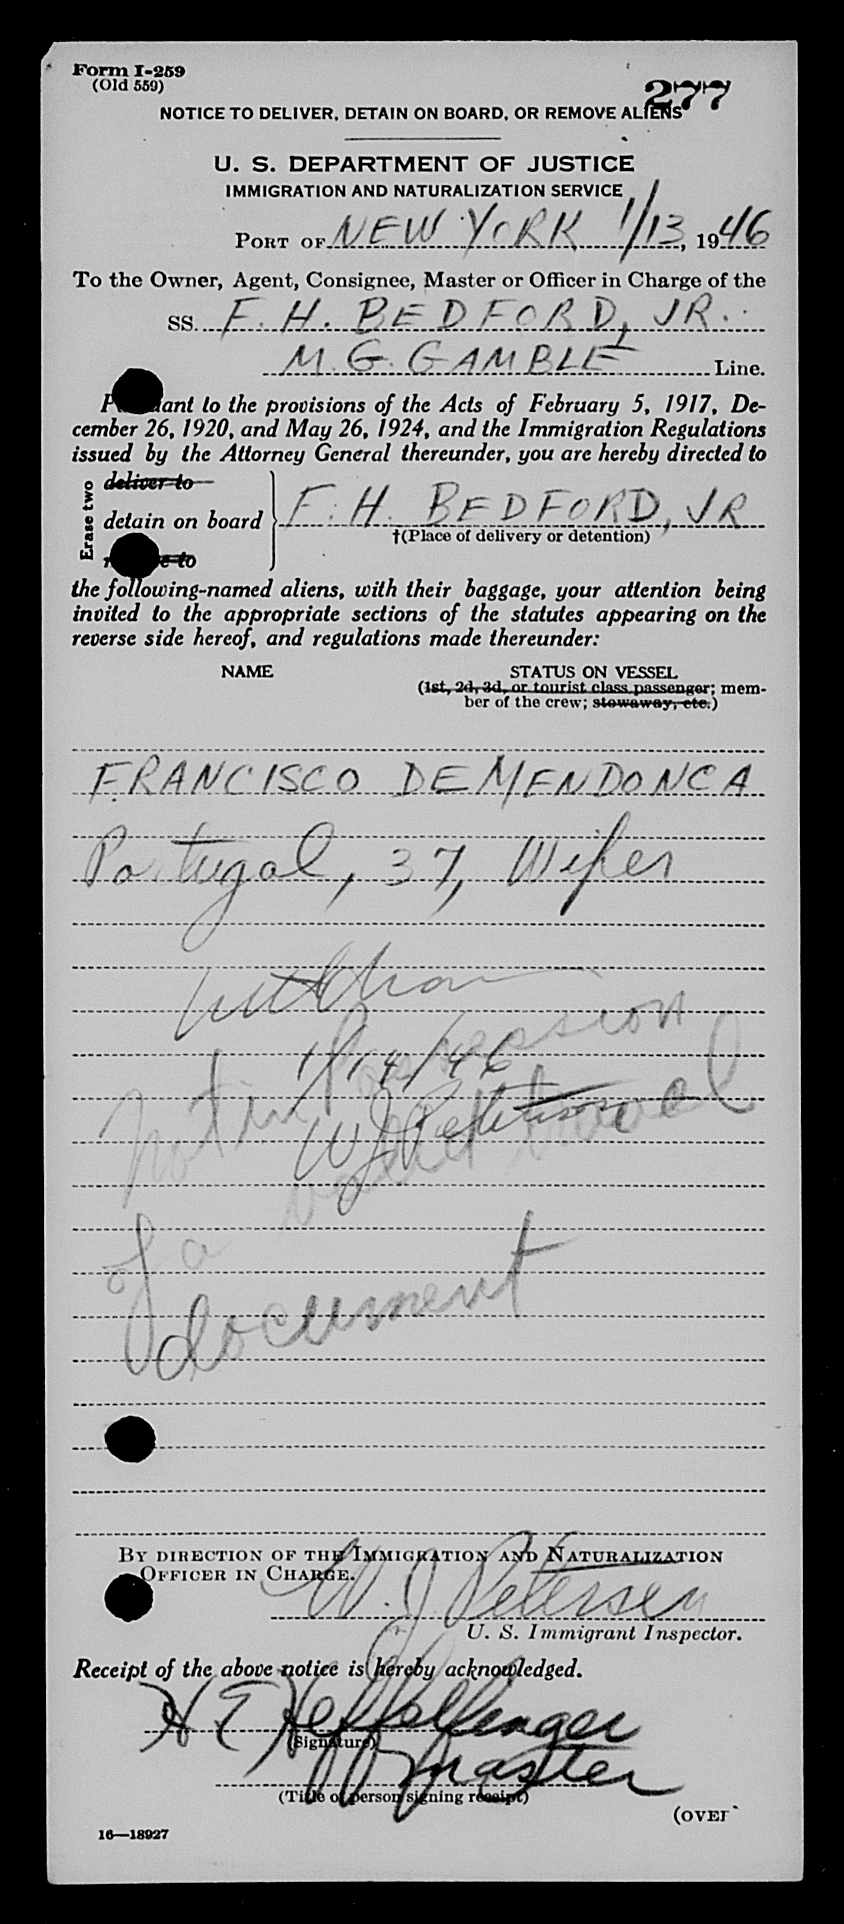 Form I-259
(Old 559)
277
NOTICE TO DELIVER, DETAIN ON BOARD, OR REMOVE ALIENS
U. S. DEPARTMENT OF JUSTICE
IMMIGRATION AND NATURALIZATION SERVICE
PORT OF NEW YORK 1/13, 1946
To the Owner, Agent, Consignee, Master or Officer in Charge of the
SS. F. H. BEDFORD, JR.
M. G. GAMBLE Line.
Pursuant to the provisions of the Acts of February 5, 1917, De-
cember 26, 1920, and May 26, 1924, and the Immigration Regulations
issued by the Attorney General thereunder, you are hereby directed to
Erase two
deliver to
detain on board F. H. BEDFORD, JR
†(Place of delivery or detention)
to
the following-named aliens, with their baggage, your attention being
invited to the appropriate sections of the statutes appearing on the
reverse side hereof, and regulations made thereunder:
NAME STATUS ON VESSEL
(1st, 2d, 3d, or tourist class passenger; mem-
ber of the crew; stowaway, etc.)
FRANCISCO DEMENDONCA
Portugal, 37, Wiper
1/14/46
W J Petersen
not in possession
of a valid travel
document
BY DIRECTION OF THE IMMIGRATION AND NATURALIZATION
OFFICER IN CHARGE.
W. J. Petersen
U. S. Immigrant Inspector.
Receipt of the above notice is hereby acknowledged.
H E Heffelfinger
(Signature)
master
(Title of person signing receipt)
(OVER
16—18927